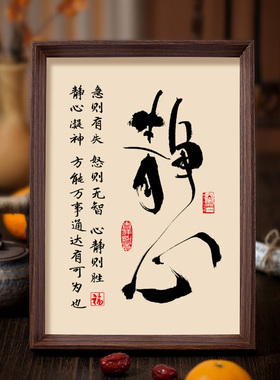 静心
急则有失 怒则无智 心静则胜
静心凝神 方能万事通达有可为也
福